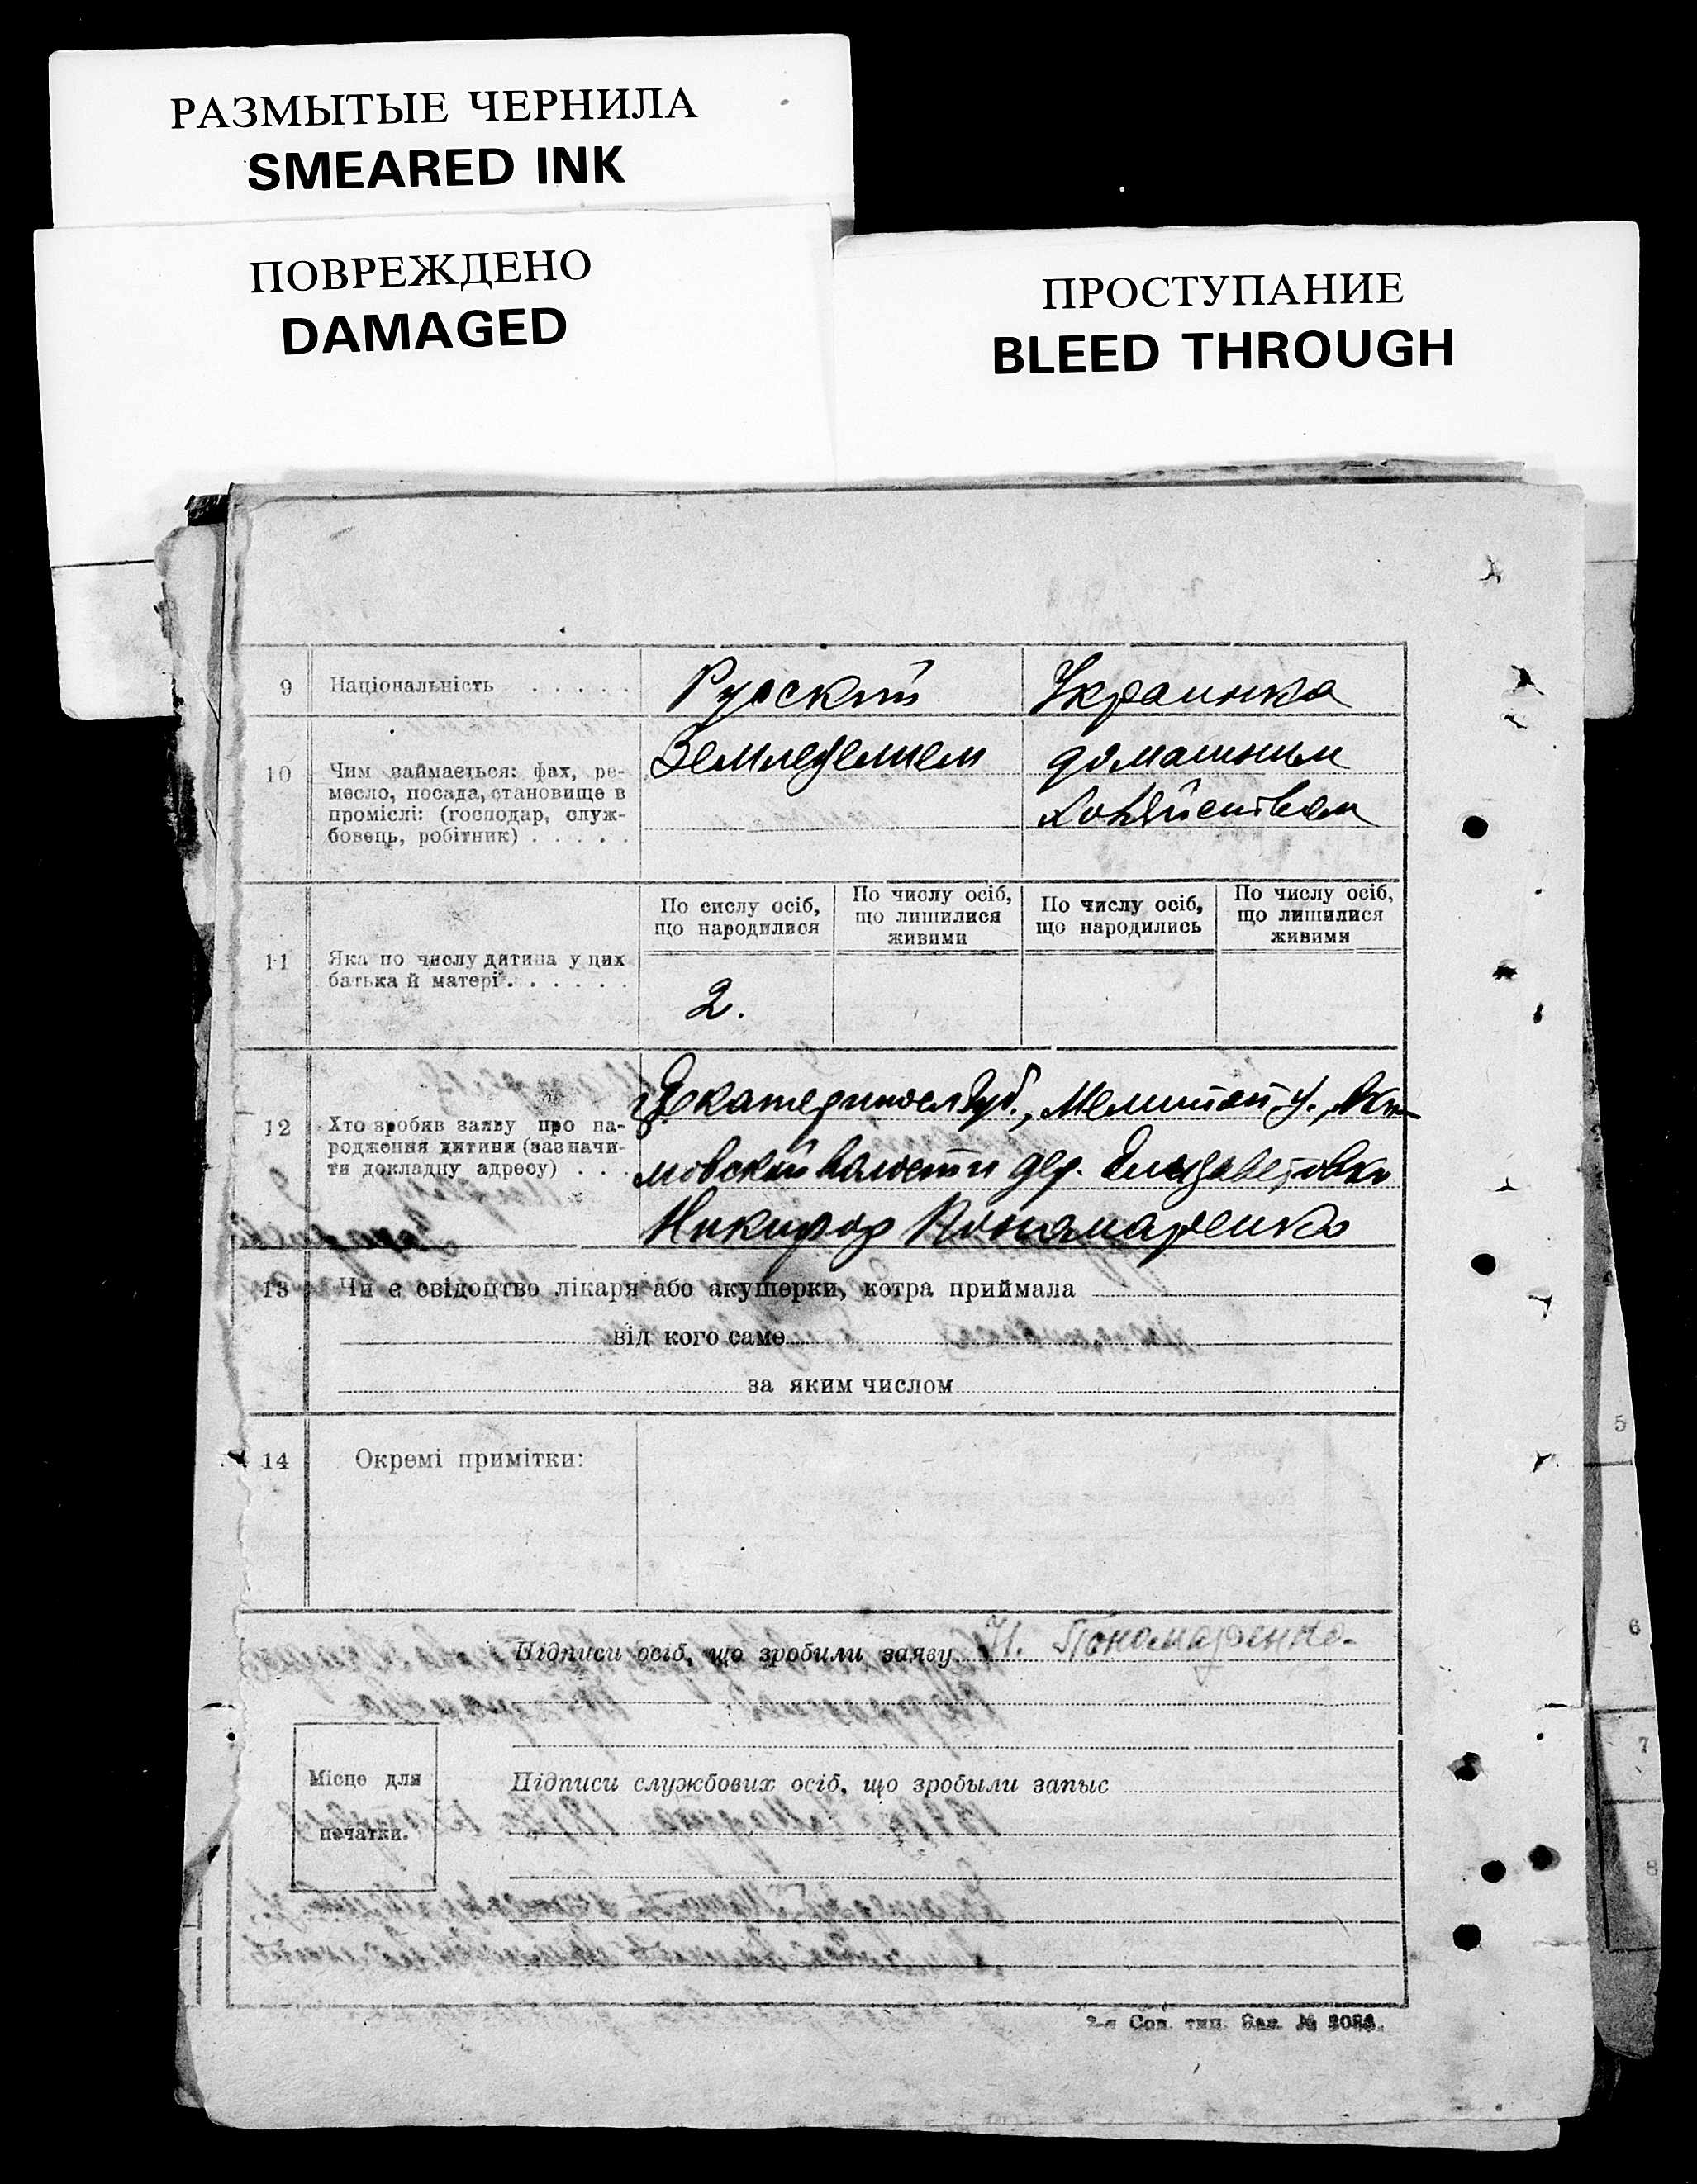 РАЗМЫТЫЕ ЧЕРНИЛА
SMEARED INK
ПОВРЕЖДЕНО
DAMAGED
ПРОСТУПАНИЕ
BLEED THROUGH
9 Національність . . . . . Русский Украинка
10 Чим займається: фах, ре-
месло, посада, становище в
проміслі: (господар, служ-
бовець, робітник) . . . . .
Земледелием
домашним
хозяйством
11 Яка по числу дитина у цих
батька й матері . . . . . .
По сислу осіб,
що народилися
По числу осіб,
що лишилися
живими
По числу осіб,
що народились
По числу осіб,
що лишилися
живими
2.
12 Хто зробив заяву про на-
родження дитини (зазначи-
ти докладну адресу) . . .
Екатеринослгуб., Мелитоп у., Аки-
мовской волости дер. Елизаветовки
Никифор Пономаренко
13 Чи є свідоцтво лікаря або акушерки, котра приймала
від кого саме
за яким числом
14 Окремі примітки:
Підписи осіб, що зробили заяву Н. Пономаренко.
Місце для
печатки.
Підписи службових осіб, що зробыли запыс
2-я Сов. тип. Зак. №
5
6
7
8